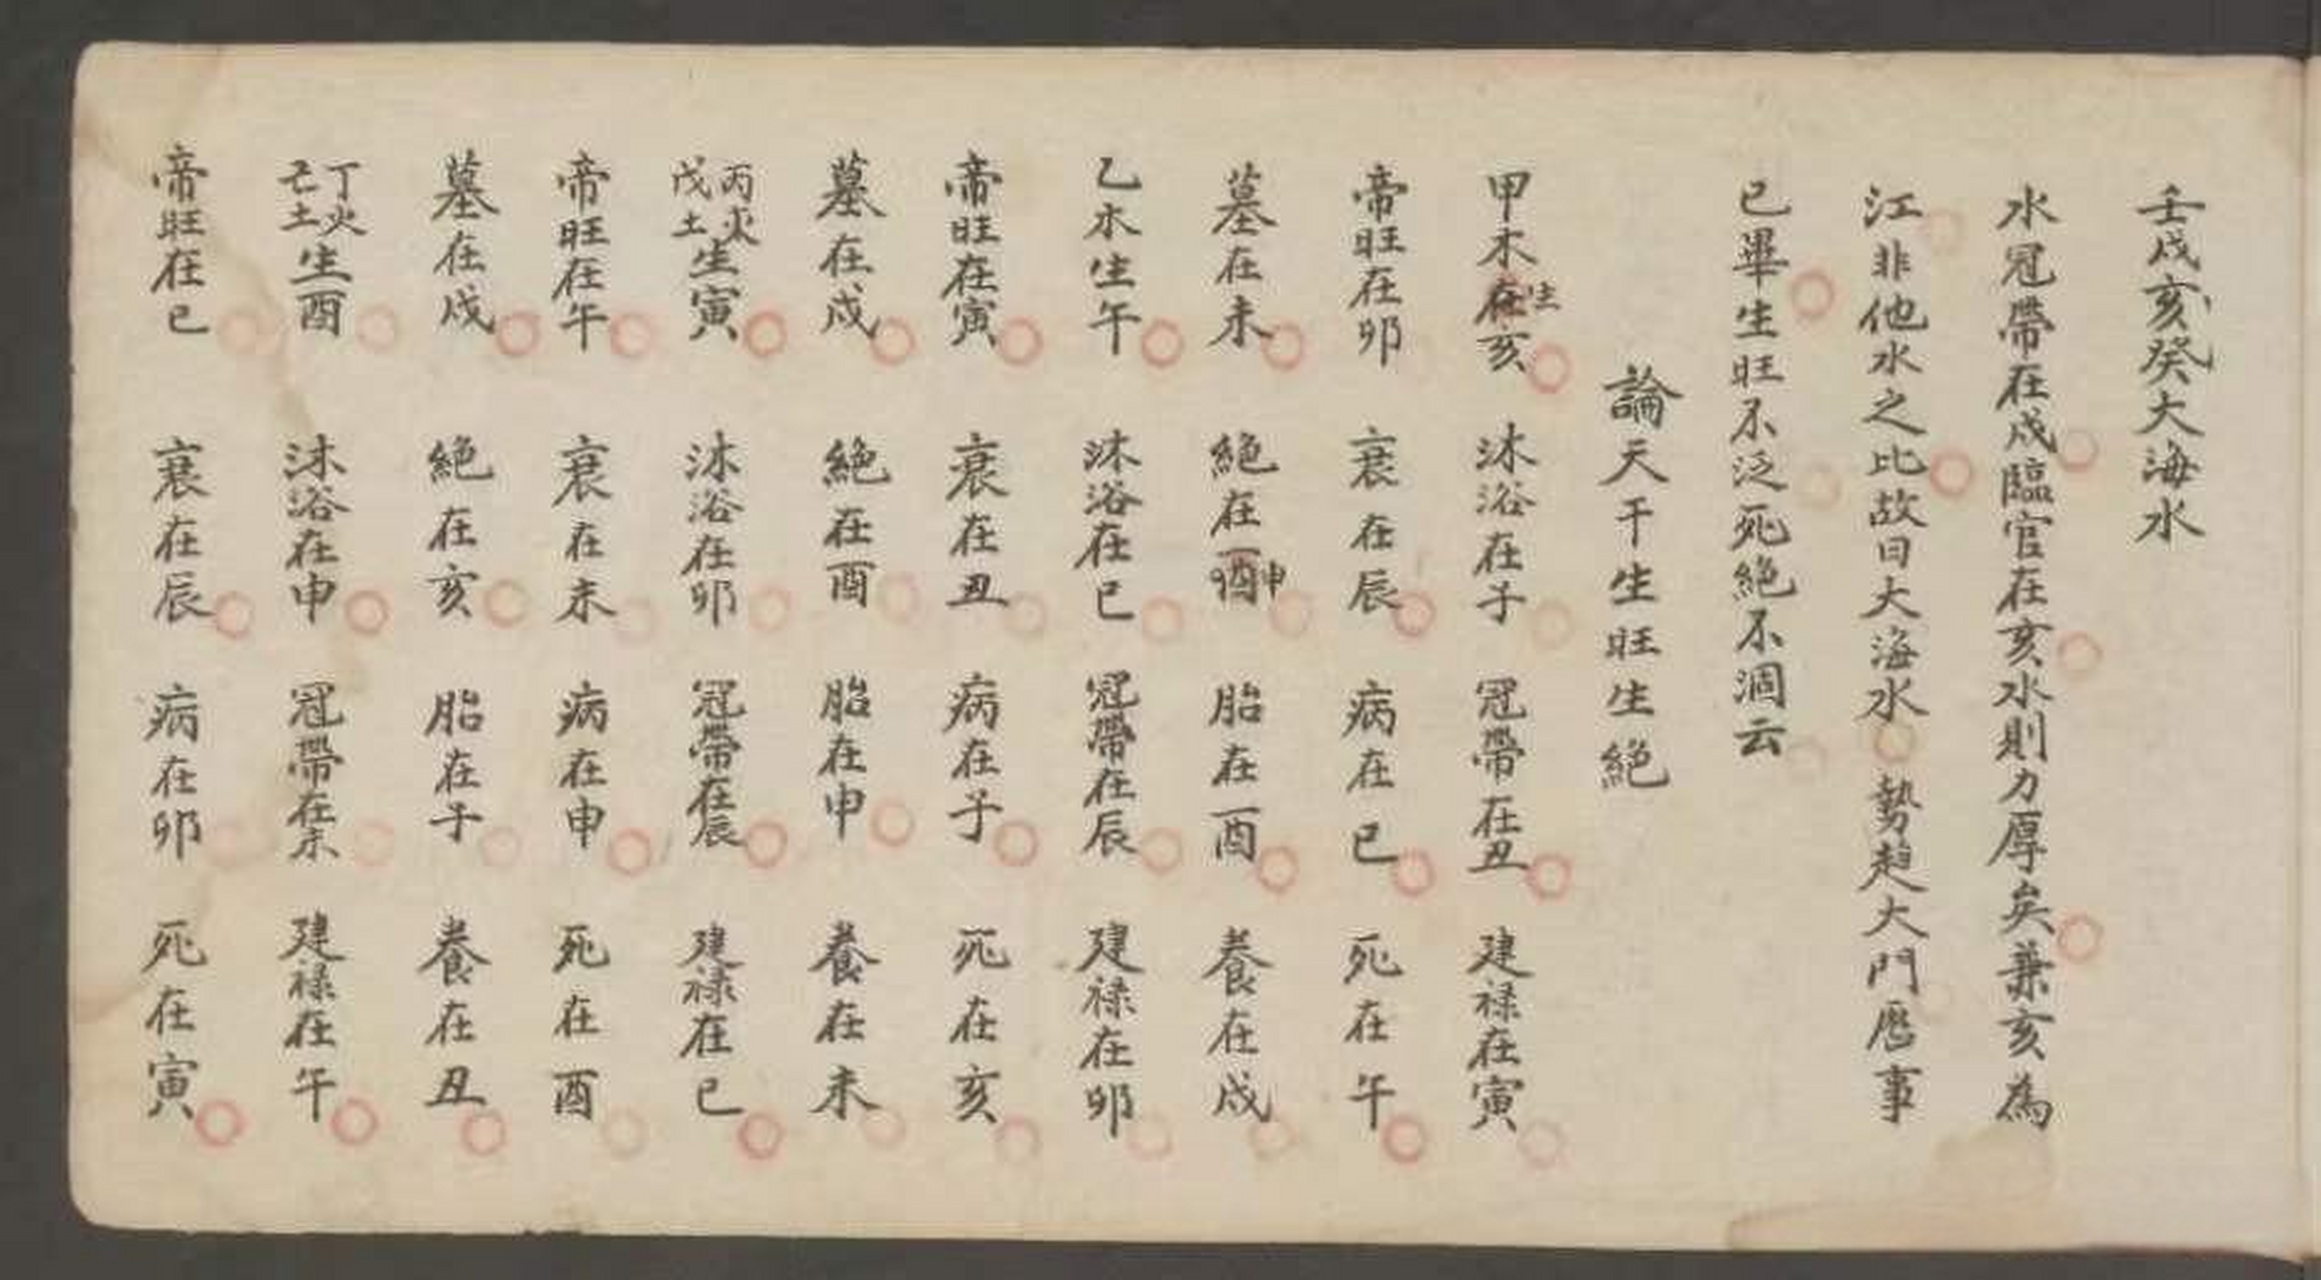 壬戌亥癸大海水
水冠帶在戌臨官在亥水則力厚矣兼亥為
江非他水之比故曰大海水勢趋大門曆事
已畢生旺不泛死絕不涸云
論天干生旺生絕
甲木在生亥 沐浴在子 冠帶在丑 建祿在寅
帝旺在卯 衰在辰 病在巳 死在午
墓在未 絕在酉申 胎在酉 養在戌
乙水生午 沐浴在巳 冠帶在辰 建祿在卯
帝旺在寅 衰在丑 病在子 死在亥
墓在戌 絕在酉 胎在申 養在未
丙火戊土生寅 沐浴在卯 冠帶在辰 建祿在巳
帝旺在午 衰在未 病在申 死在酉
墓在戌 絕在亥 胎在子 養在丑
丁火己土生酉 沐浴在申 冠帶在未 建祿在午
帝旺在巳 衰在辰 病在卯 死在寅